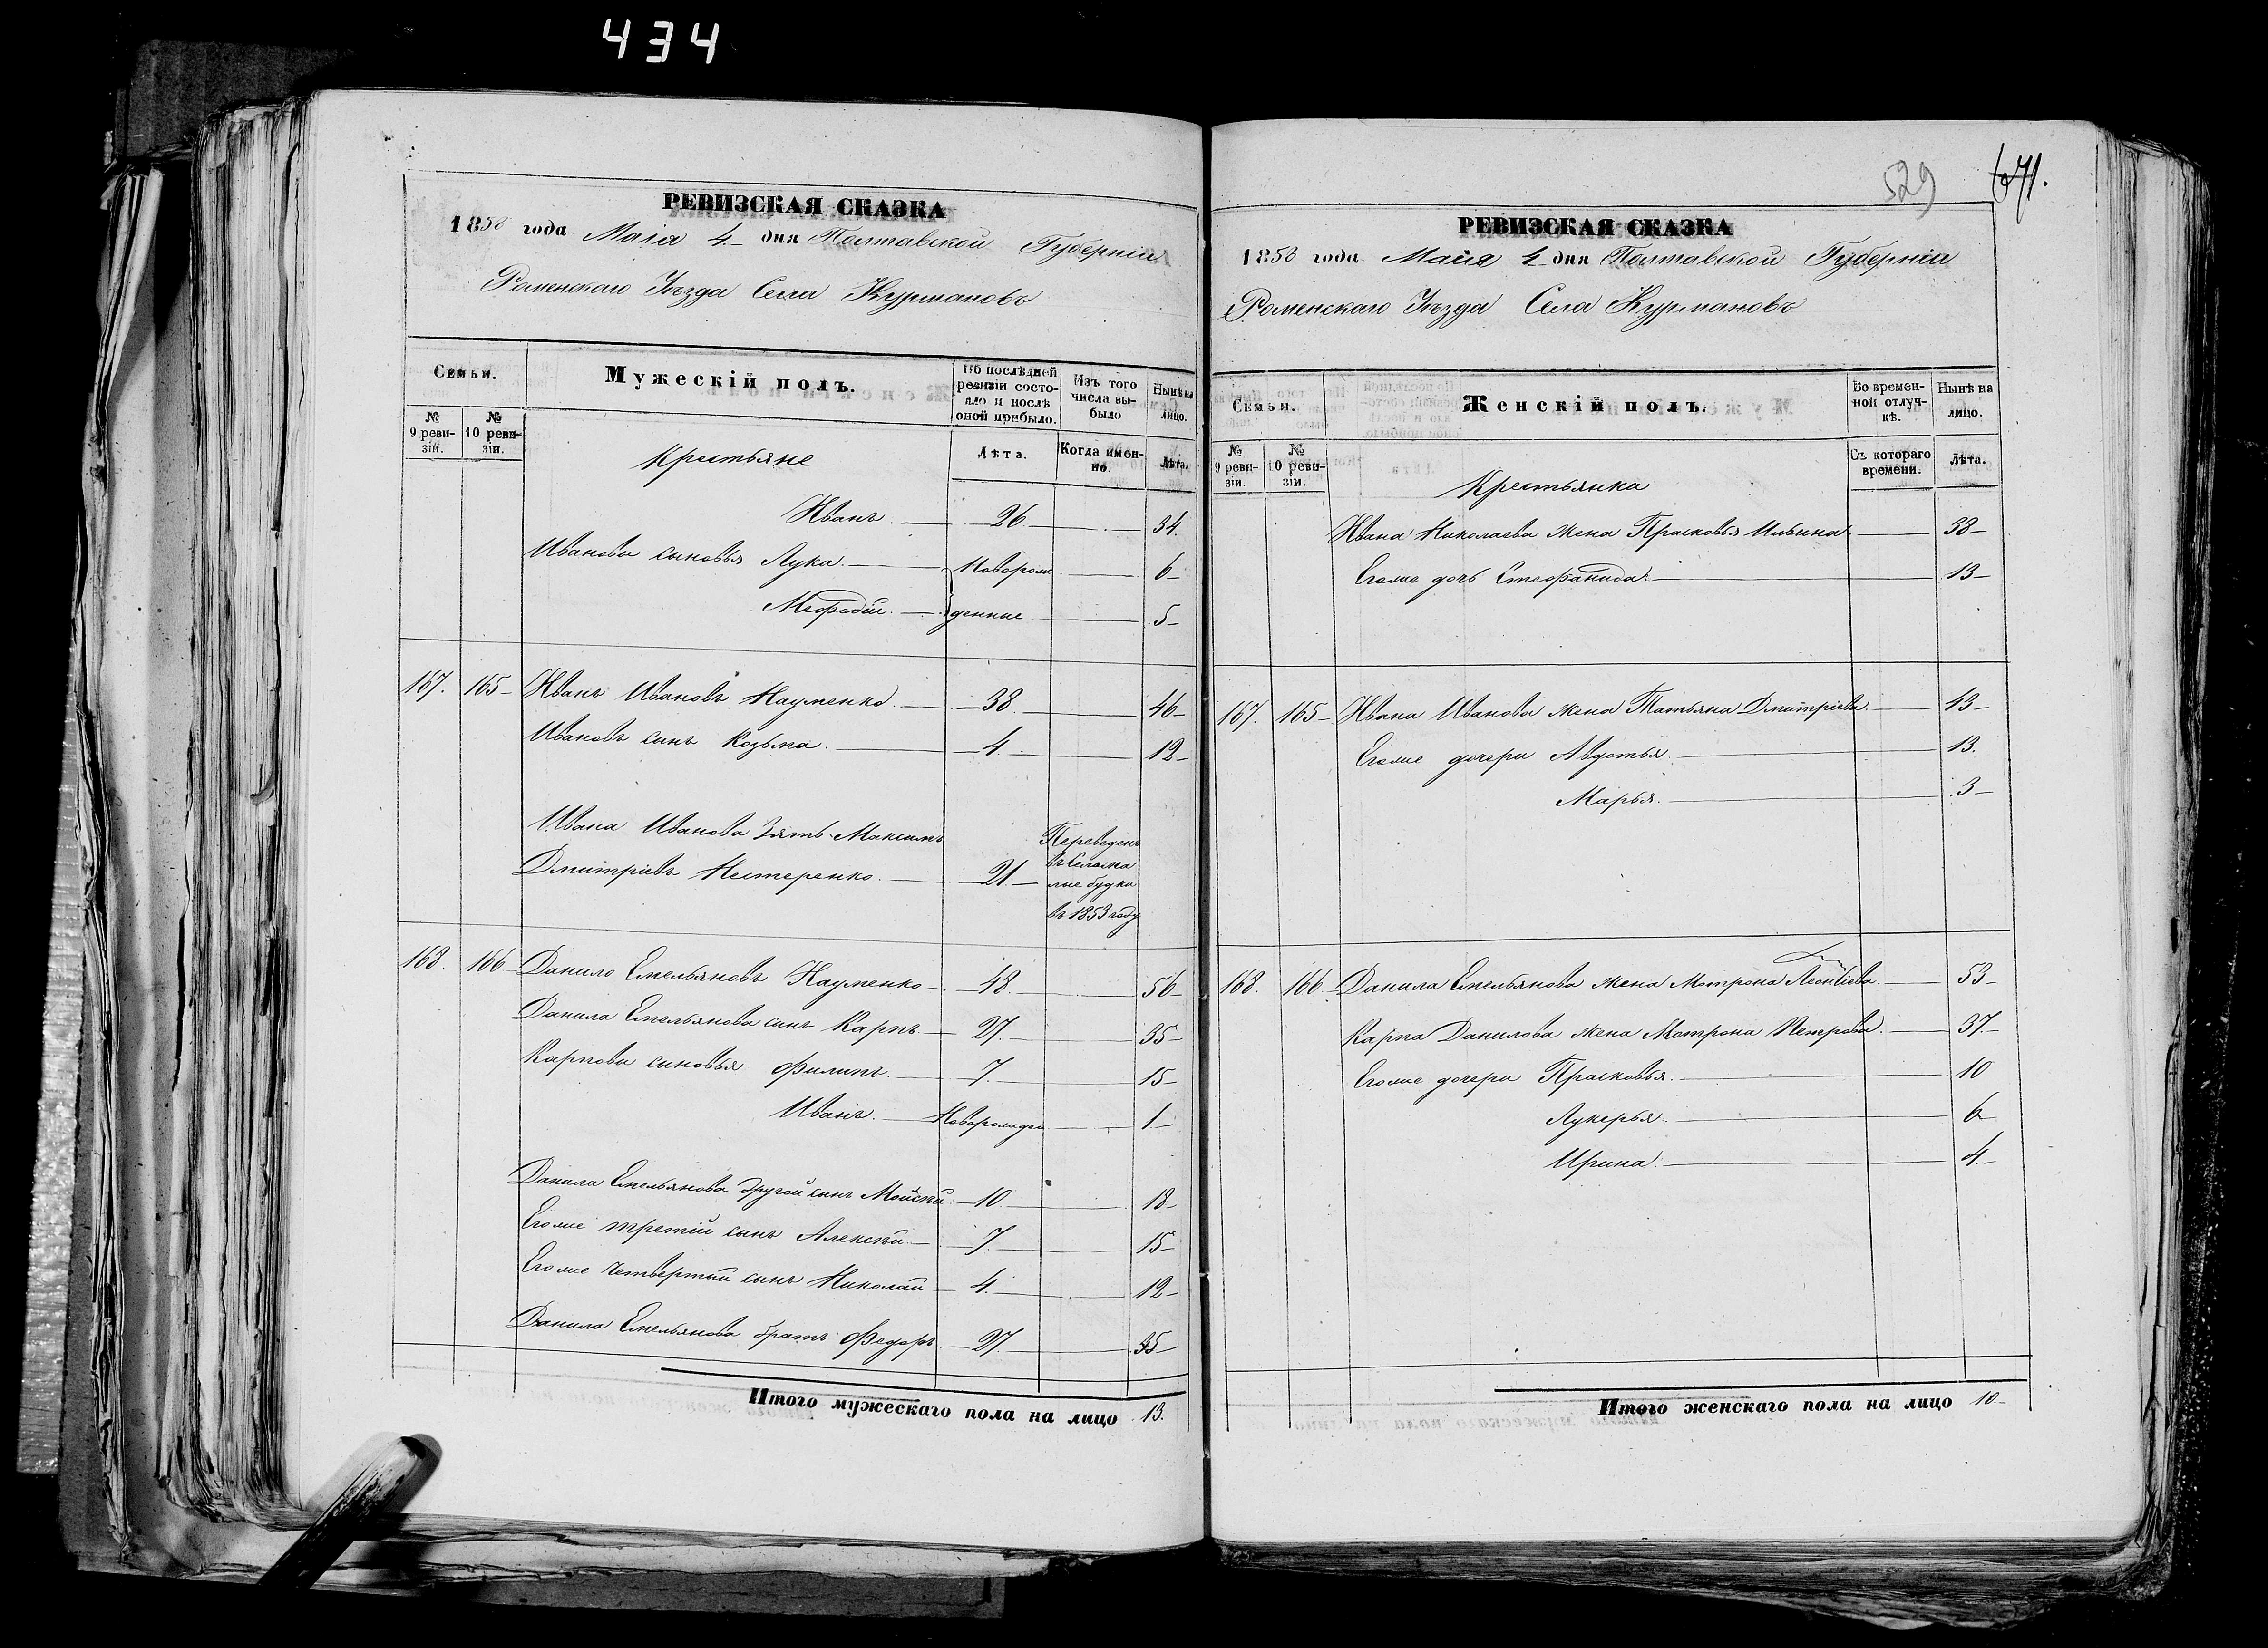 434
РЕВИЗСКАЯ СКАЗКА
1858 года Маія 4 дня Полтавской Губерніи
Роменскаго Уѣзда Села Курмановъ
Семьи.
Мужескій полъ.
По послѣдней ревизіи состояло и послѣ оной прибыло.
Изъ того числа выбыло
Нынѣ на лицо.
№ 9 ревизіи.
№ 10 ревизіи.
Крестьяне
Лѣта.
Когда именно.
Лѣта.
Иванъ 26 34
Ивановы сыновья Лука Новорож 6
Мефодій денные 5
167. 165 Иванъ Ивановъ Науменко 38 46
Ивановъ сынъ Козьма 4 12
Ивана Иванова Зять Максимъ Переведенъ
Дмитріевъ Нестеренко 21 въ Село ма
лые будки
въ 1853 году
168. 166 Данило Емельяновъ Науменко 48 56
Данила Емельянова сынъ Карпъ 27 35
Карповы сыновья Филипъ 7 15
Иванъ Новорожден 1
Данила Емельянова другой сынъ Мойсѣй 10 18
Егоже третій сынъ Алексѣй 7 15
Егоже четвертый сынъ Николай 4 12
Данила Емельянова братъ Федоръ 27 35
Итого мужескаго пола на лицо 13.
529 671.
РЕВИЗСКАЯ СКАЗКА
1858 года Майя 4 дня Полтавской Губерніи
Роменскаго Уѣзда Села Курмановъ
Семьи.
Женскій полъ.
Во временной отлучкѣ.
Нынѣ на лицо.
№ 9 ревизіи.
№ 10 ревизіи.
Крестьянка
Съ котораго времени.
Лѣта.
Ивана Николаева жена Прасковья Ильина 38
Егоже дочь Стефанида 13
167. 165 Ивана Иванова жена Татьяна Дмитріева 43
Егоже дочери Авдотья 13.
Марья 3
168. 166 Данила Емельянова жена Мотрона Леонтіева 53
Карпа Данилова жена Мотрона Петрова 37
Егоже дочери Прасковья 10
Лукерья 6
Ирина 4
Итого женскаго пола на лицо 10